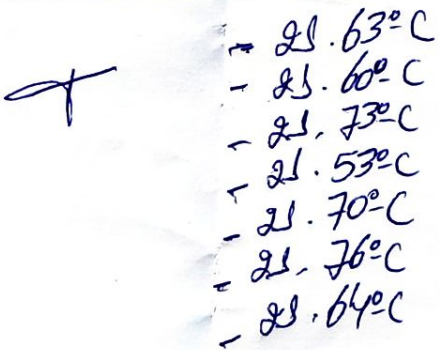 T
- 21.63º C
- 21.60º C
- 21.73º C
- 21.53º C
- 21.70º C
- 21.76º C
- 21.64º C